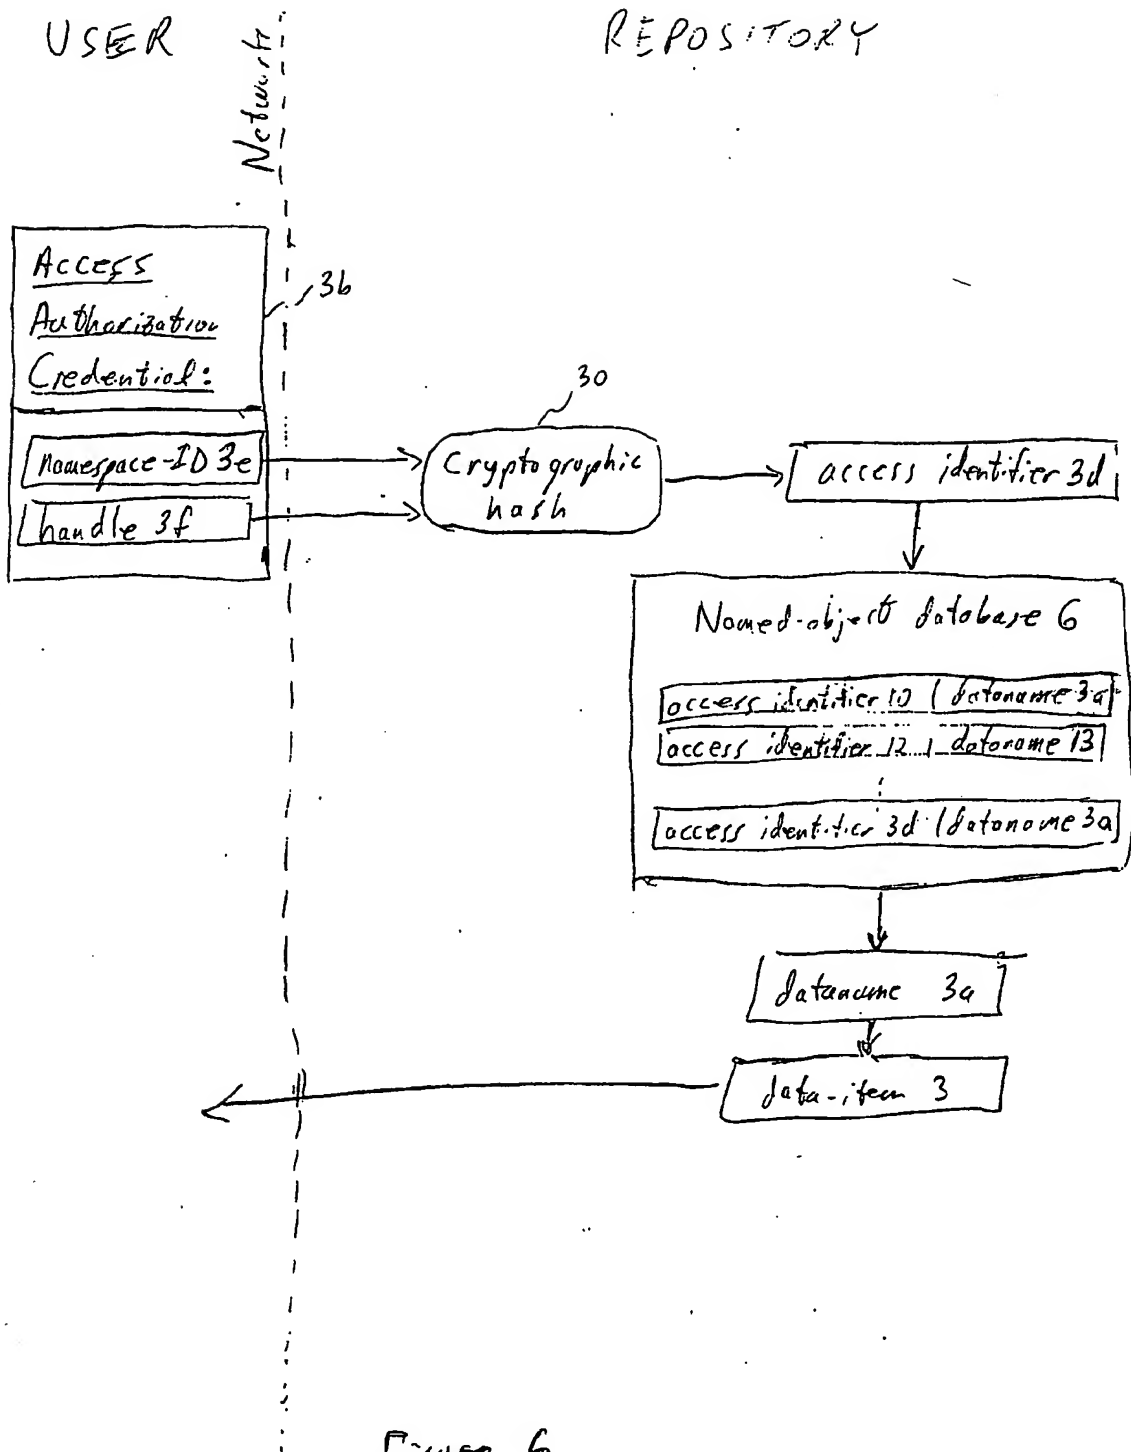 USER
REPOSITORY
Network
Access
Authorization
Credential:
3b
namespace-ID 3e
handle 3f
30
Cryptographic
hash
access identifier 3d
Named-object database 6
access identifier 10 | dataname 3a
access identifier 12 | dataname 13
access identifier 3d | dataname 3a
dataname 3a
data-item 3
Figure 6